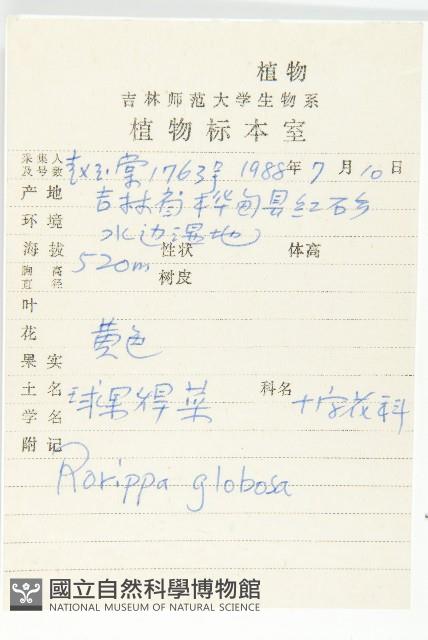 植物
吉林师范大学生物系
植物标本室
采集人及号数 赵玉棠 1763号 1988年 7月 10日
产地 吉林省桦甸县红石乡
环境 水边湿地
海拔 520m 性状 体高
胸高直径 树皮
叶
花 黄色
果实
土名 球果蔊菜 科名 十字花科
学名
附记
Rorippa globosa
國立自然科學博物館
NATIONAL MUSEUM OF NATURAL SCIENCE